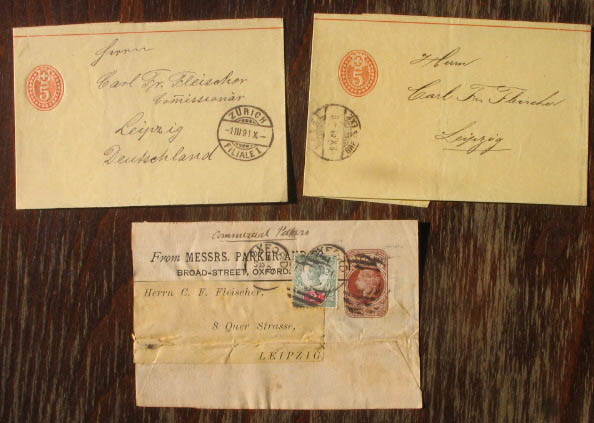 5
Herrn
Carl Fr. Fleischer
Comissionär
Leipzig
Deutschland
ZÜRICH
-1 III 91 X-
FILIALE I
5
Herrn
Carl Fr. Fleischer
Leipzig
Commercial Papers
From MESSRS. PARKER AND
BROAD-STREET, OXFORD.
Herrn C. F. Fleischer,
8 Quer Strasse,
LEIPZIG